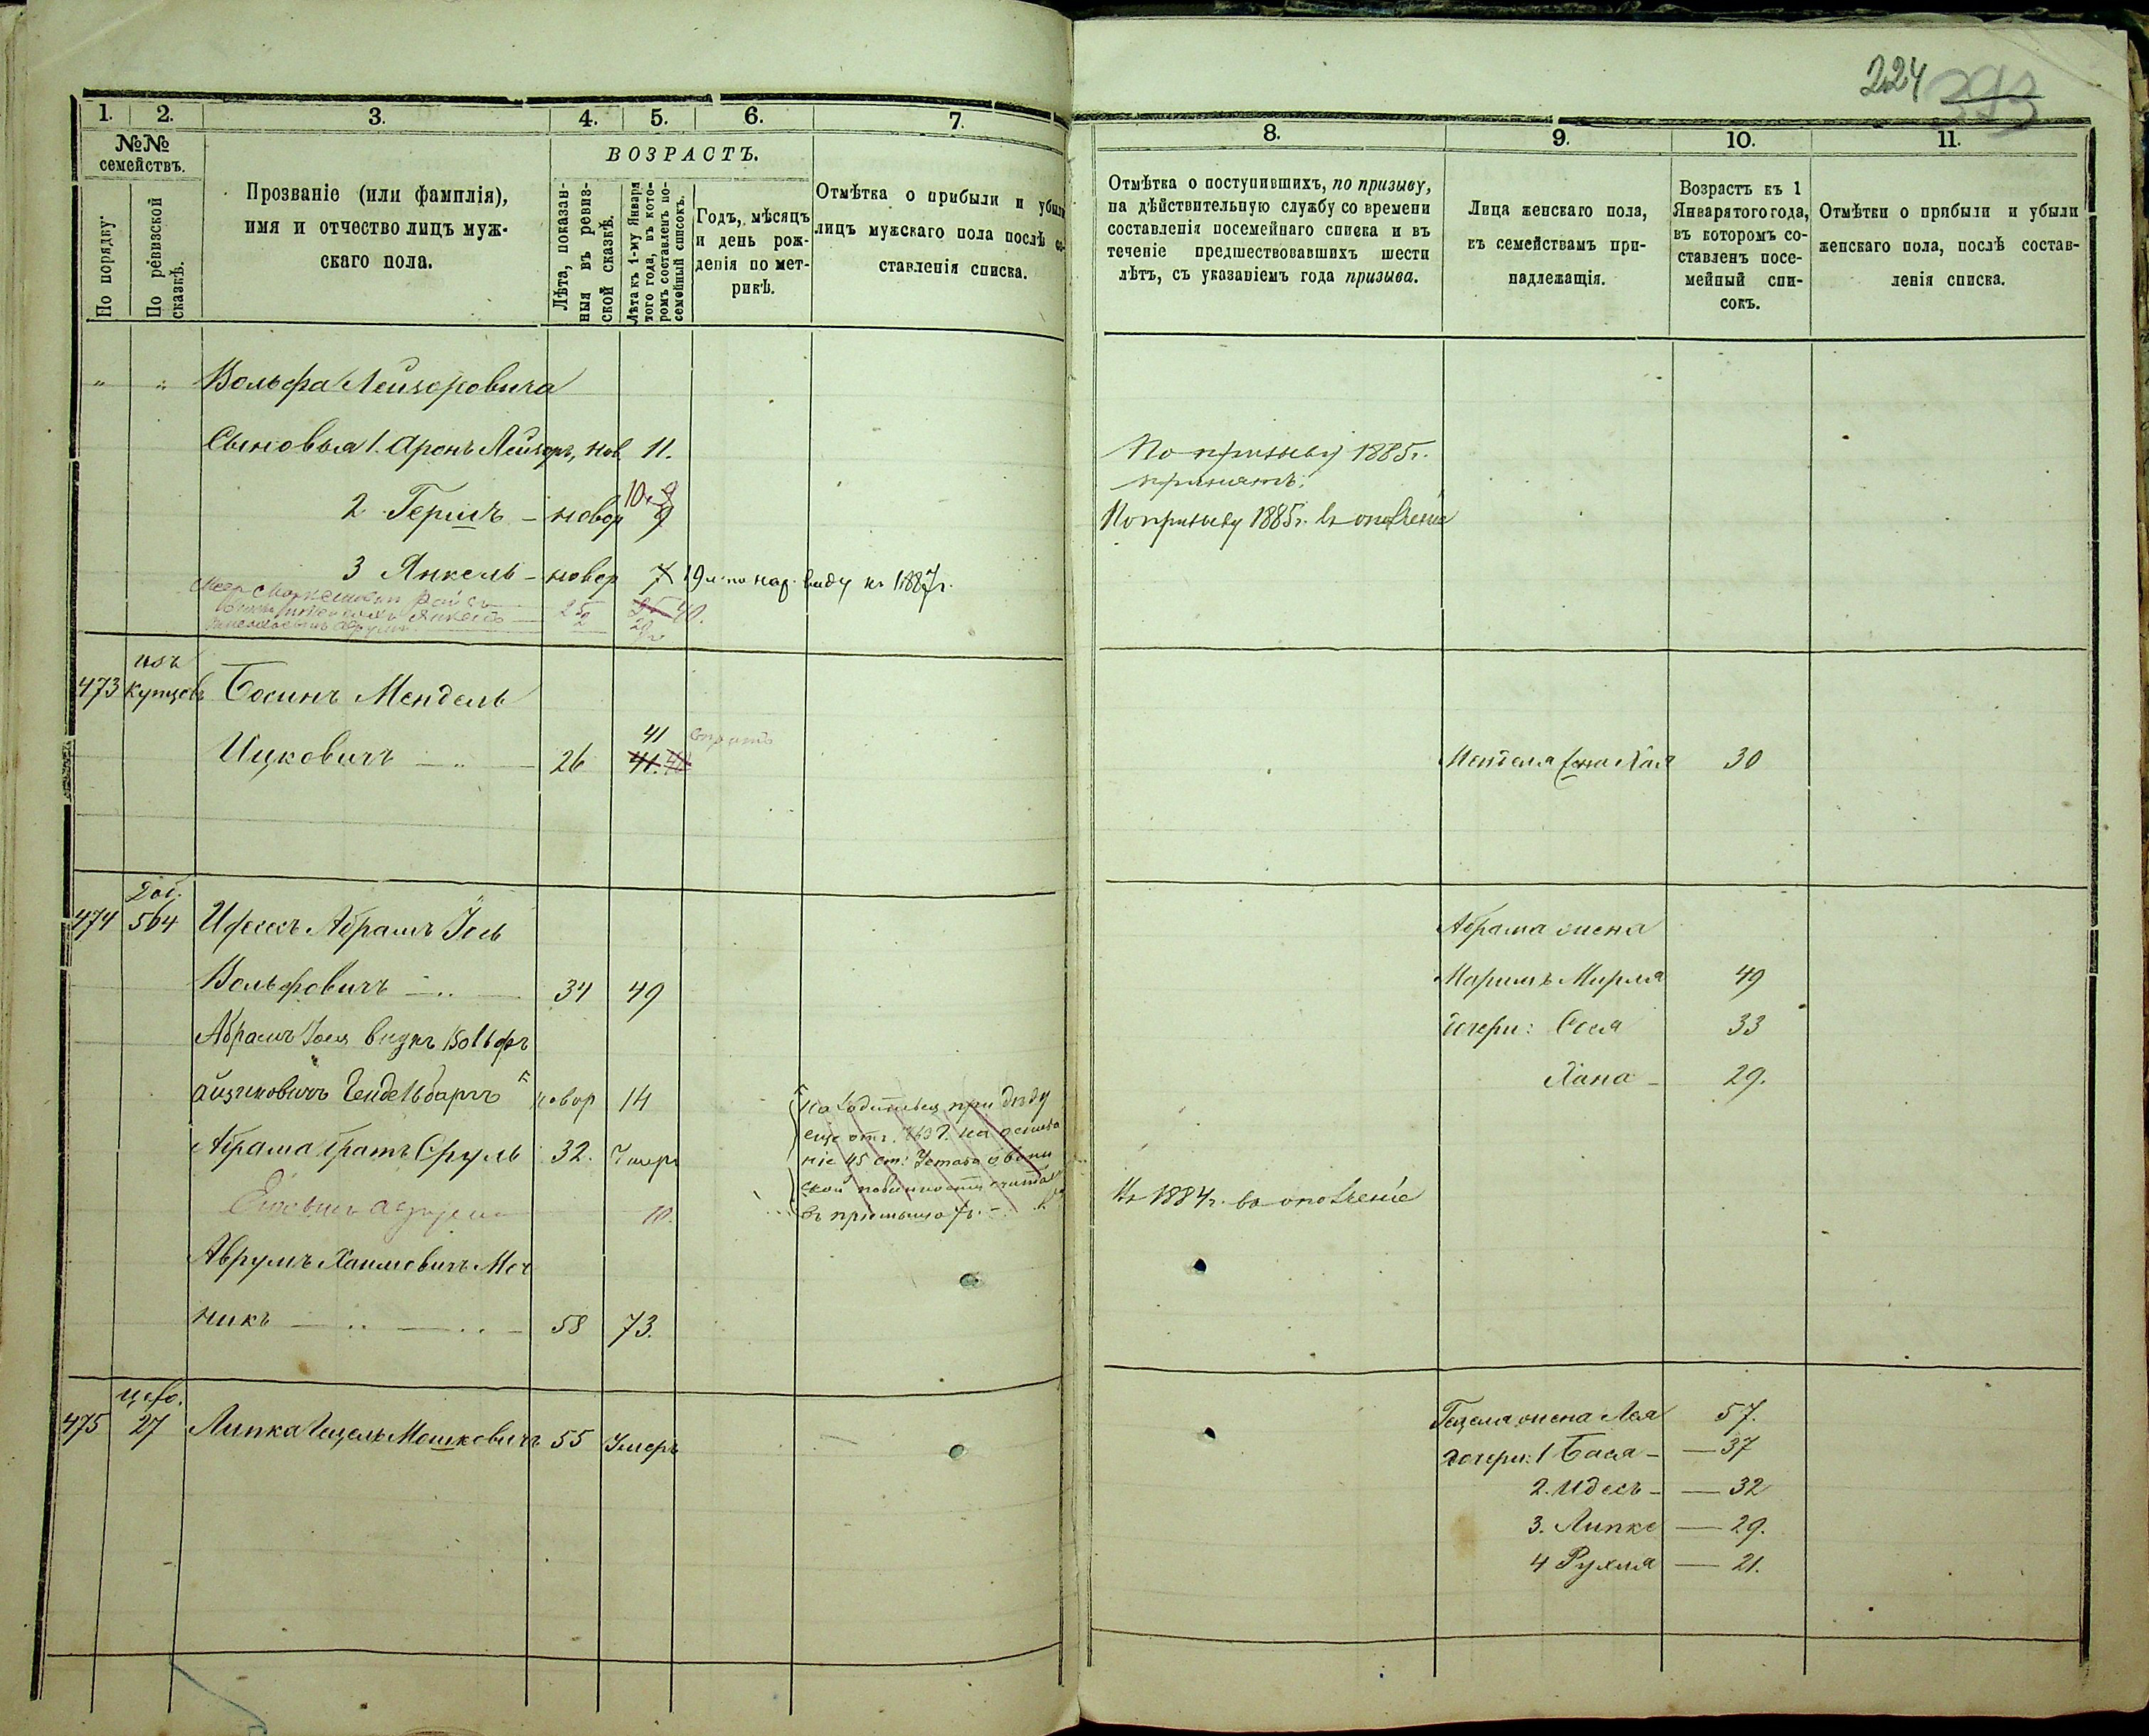 224 393
1. 2. 3. 4. 5. 6. 7.
№№ семействъ.
По порядку.
По ревизской сказкѣ.
Прозваніе (или фамилія),
имя и отчество лицъ муж-
скаго пола.
ВОЗРАСТЪ.
Лѣта, показан-
ныя въ ревиз-
ской сказкѣ.
Лѣта къ 1-му Января
того года, въ кото-
ромъ составленъ по-
семейный списокъ.
Годъ, мѣсяцъ
и день рож-
денія по мет-
рикѣ.
Отмѣтка о прибыли и убыли
лицъ мужскаго пола послѣ со-
ставленія списка.
" " Вольфа Лейзоровича
Сыновья 1. Аронъ Лейзоръ, нов. 11.
2 Гершъ – новор 10. 9
3 Янкель – новор 7 19 л. по нар. виду къ 1887 г.
25 40.
473 изъ купцовъ Босинъ Мендель
Ицковичъ — " — 26 41 41. 40
474 Доп. 564 Абрамъ Іось
Вольфовичъ — .. — 34 49
Абрамъ Іося внукъ Вольфъ
новор 14
Абрама братъ Сруль 32. Умеръ
находится при дѣду
ніе 45 ст: Устава о воин
ской повинности
10.
Аврумъ Хаимовичъ Меч
никъ — .. — .. – 58 73.
475 27 Липка Гецель Мошковичъ 55 Умеръ
8. 9. 10. 11.
Отмѣтка о поступившихъ, по призыву,
на дѣйствительную службу со времени
составленія посемейнаго списка и въ
теченіе предшествовавшихъ шести
лѣтъ, съ указаніемъ года призыва.
Лица женскаго пола,
къ семействамъ при-
надлежащія.
Возрастъ къ 1
Января того года,
въ которомъ со-
ставленъ посе-
мейный спи-
сокъ.
Отмѣтки о прибыли и убыли
женскаго пола, послѣ состав-
ленія списка.
По призыву 1885 г.
принятъ.
По призыву 1885 г. въ ополченіе
Менделя жена Хая 30
Абрама жена
Маримъ Мирля 49
дочери: Сося 33
Хана – 29.
Въ 1884 г. въ ополченіе
Гецеля жена Лея 57.
дочери: 1 Бася – — 37
2. Идесъ – — 32
3. Липке — 29.
4 Рухля — 21.